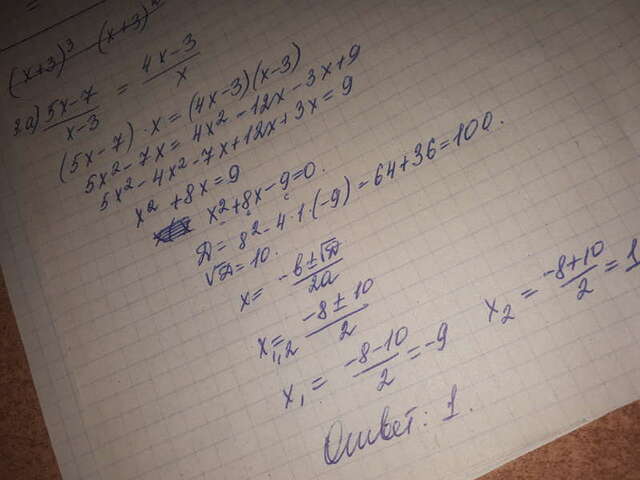 (x+3)2 (x+3)
2a) 5x-7/x-3 = 4x-3/x
(5x-7)·x = (4x-3)(x-3)
5x2-7x = 4x2-12x-3x+9
5x2-4x2-7x+12x+3x=9
x2+8x=9
x2+8x-9=0.
D=82-4·1·(-9)=64+36=100.
√D=10.
x= -b±√D/2a
x1,2= -8±10/2
x1= -8-10/2=-9 x2= -8+10/2=1
Ответ: 1.